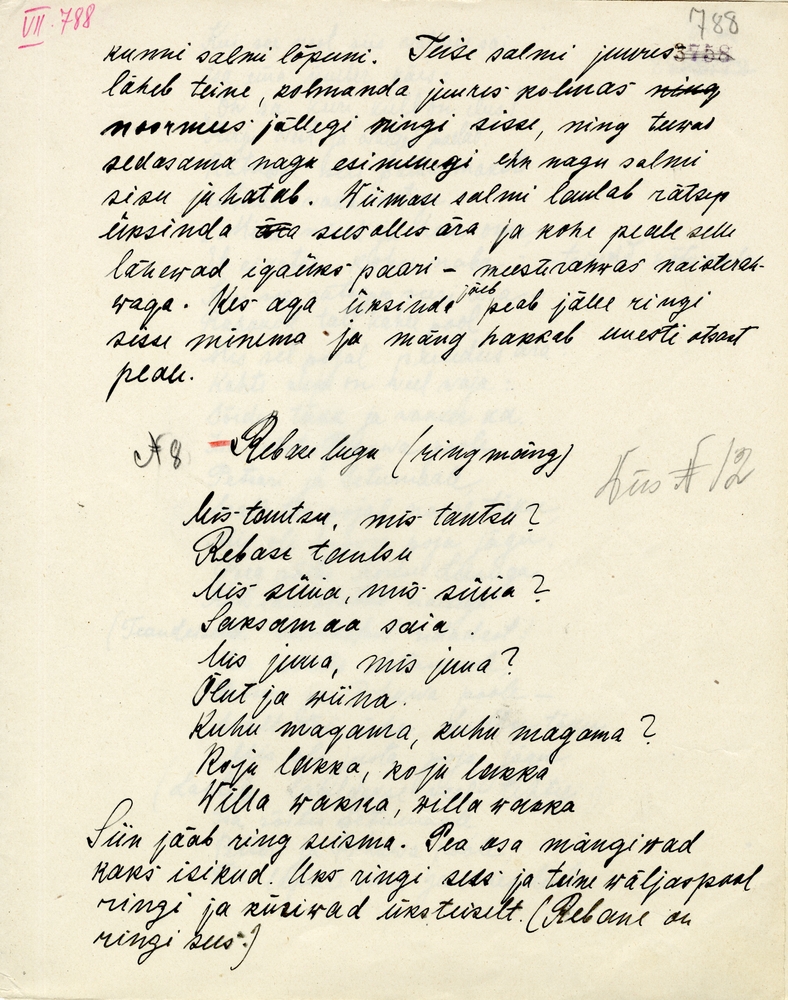 VII. 788
788
3758
kunni salmi lõpuni. Teise salmi juures
läheb teine, kolmanda juures kolmas ning
noormees jällegi ringi sisse, ning teewad
sedasama nagu esimenegi ehk nagu salmi
sisu juhatab. Wiimase salmi laulab rätsep
üksinda ära sees olles ära ja kohe peale selle
lähewad igaüks paari – meesterahwas naisterah-
waga. Kes aga üksinda jääb peab jälle ringi
sisse minema ja mäng hakkab uuesti otsast
peale.
N 8. Rebase lugu (ringmäng)
Viis N 12
Mis tantsu, mis tantsu?
Rebase tantsu
Mis süüa, mis süüa?
Saksamaa saia.
Mis juua, mis juua?
Õlut ja wiina.
Kuhu magama, kuhu magama?
Koju lakka, koju lakka
Willa wakka, willa wakka
Siin jääb ring seisma. Pea osa mängiwad
kaks isikud. Üks ringi sees ja teine wäljaspool
ringi ja küsiwad üksteiselt. (Rebane on
ringi sees.)